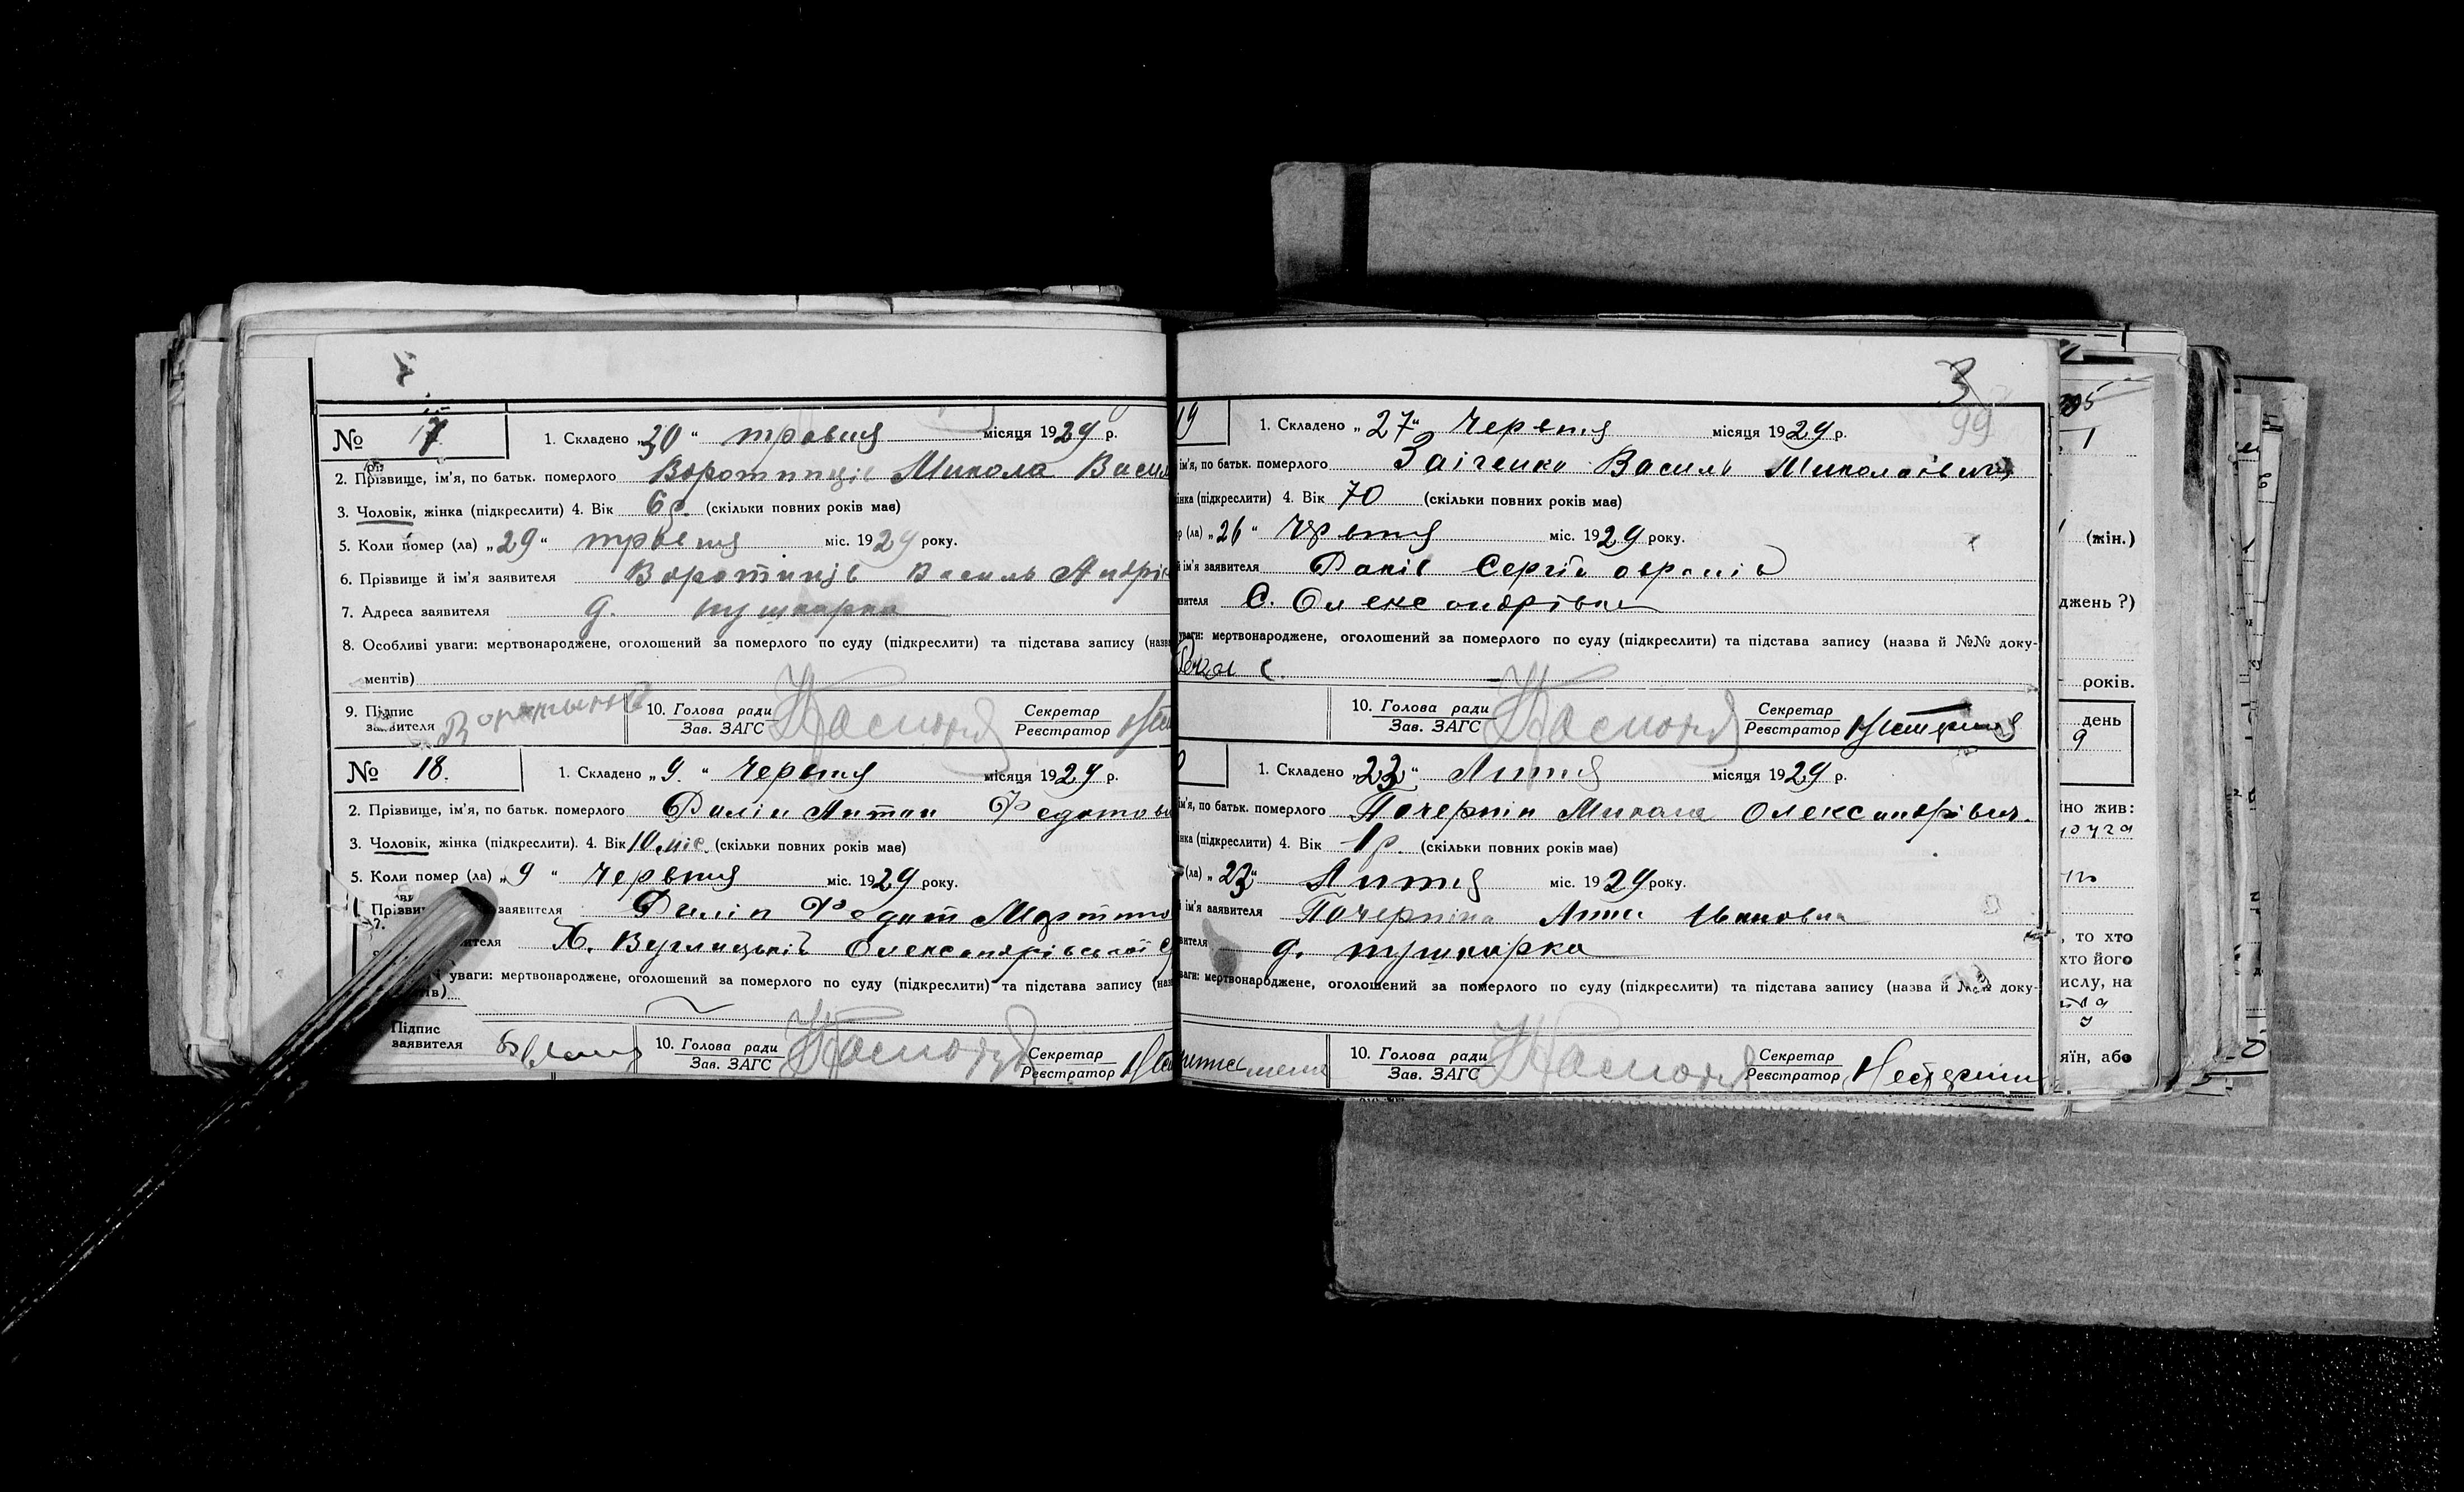 № 17
1. Складено „30“ травня місяця 1929 р.
2. Прізвище, ім'я, по батьк. померлого Воротинців Микола Васил
3. Чоловік, жінка (підкреслити) 4. Вік 6 р. (скільки повних років має)
5. Коли помер (ла) „29“ травня міс. 1929 року.
6. Прізвище й ім'я заявителя Воротинців Василь Андрі
7. Адреса заявителя д. пушкарка
8. Особливі уваги: мертвонароджене, оголошений за померлого по суду (підкреслити) та підстава запису (назв
ментів)
9. Підпис заявителя
10. Голова ради
Зав. ЗАГС
Секретар
Реєстратор
№ 18.
1. Складено „9.“ червня місяця 1929 р.
2. Прізвище, ім'я, по батьк. померлого Далін Антон Федотови
3. Чоловік, жінка (підкреслити). 4. Вік 10 міс. (скільки повних років має)
5. Коли помер (ла) „9“ червня міс. 1929 року.
Прізви заявителя Далін Федот Мартино
7.
ителя Х. Вуглицький Олександрівської
уваги: мертвонароджене, оголошений за померлого по суду (підкреслити) та підстава запису (наз
ів)
Підпис
заявителя
10. Голова ради
Зав. ЗАГС
Секретар
Реєстратор
3
99
19
1. Складено „27“ Червня місяця 1929 р.
ім'я, по батьк. померлого Заіченко Василь Миколаівич
інка (підкреслити) 4. Вік 70 (скільки повних років має)
р (ла) „26“ Червня міс. 1929 року.
й ім'я заявителя Сергій
вителя С. Олександрівка
уваги: мертвонароджене, оголошений за померлого по суду (підкреслити) та підстава запису (назва й №№ доку-
10. Голова ради
Зав. ЗАГС
Секретар
Реєстратор
1. Складено „23“ Липня місяця 1929 р.
ім'я, по батьк. померлого Почернін Микола Олександрівич.
інка (підкреслити) 4. Вік 1 р. (скільки повних років має)
(ла) „23“ Липня міс. 1929 року.
й ім'я заявителя Почерніна Анна Івановна
вителя д. пушкарка
ваги: мертвонароджене, оголошений за померлого по суду (підкреслити) та підстава запису (назва й №№ доку-
10. Голова ради
Зав. ЗАГС
Секретар
Реєстратор
(жін.)
джень ?)
років.
день
9
но жив:
, то хто
хто його
ислу, на
яїн, або